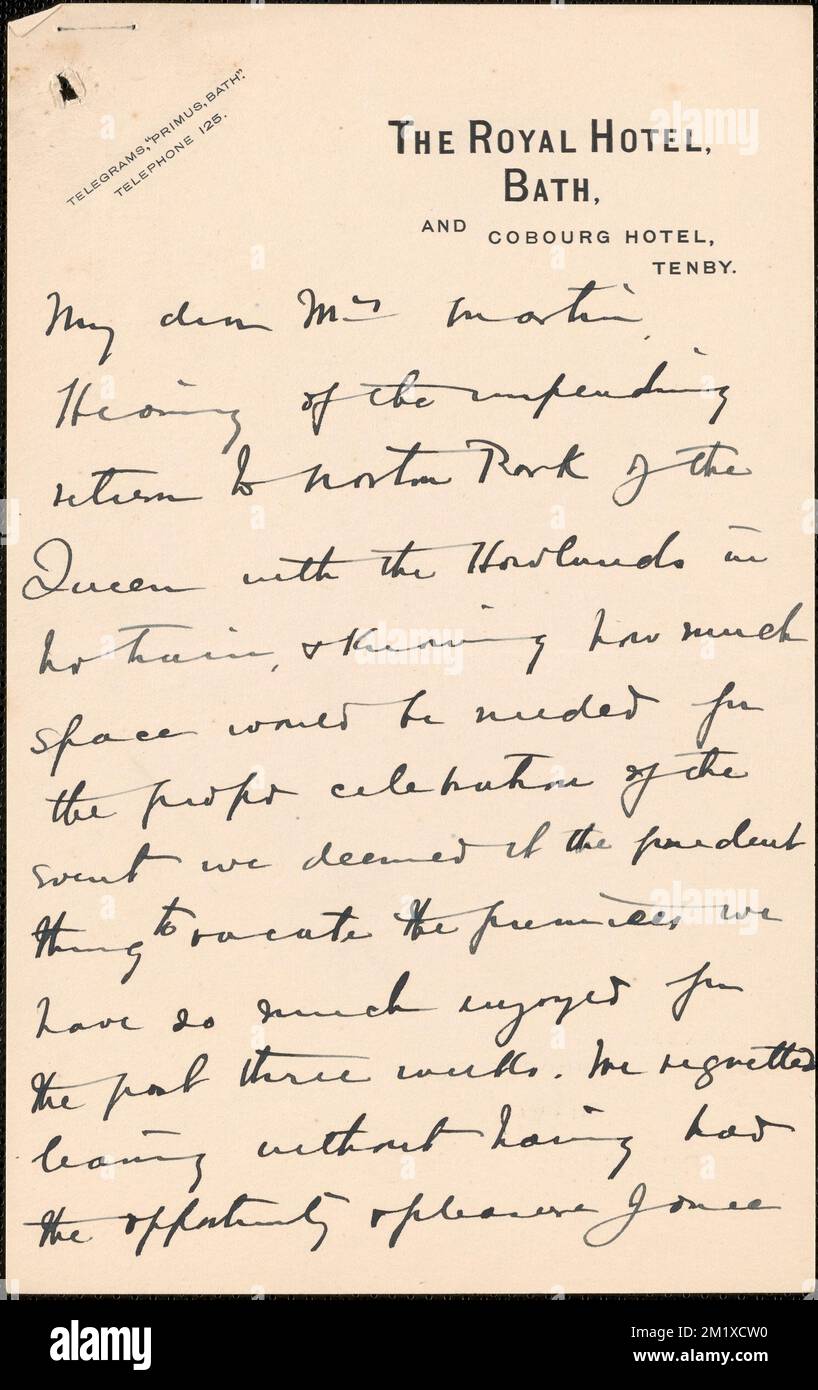 TELEGRAMS, "PRIMUS, BATH".
TELEPHONE 125.
THE ROYAL HOTEL,
BATH,
AND COBOURG HOTEL,
TENBY.
My dear Mrs Martin,
Hearing of the impending
return to Norton Park of the
Queen with the Howlands in
her train, & knowing how much
space would be needed for
the proper celebration of the
event we deemed it the prudent
thing to vacate the premises we
have so much enjoyed for
the past three weeks. We regretted
leaving without having had
the opportunity & pleasure of once
alamy
Image ID: 2M1XCW0
www.alamy.com